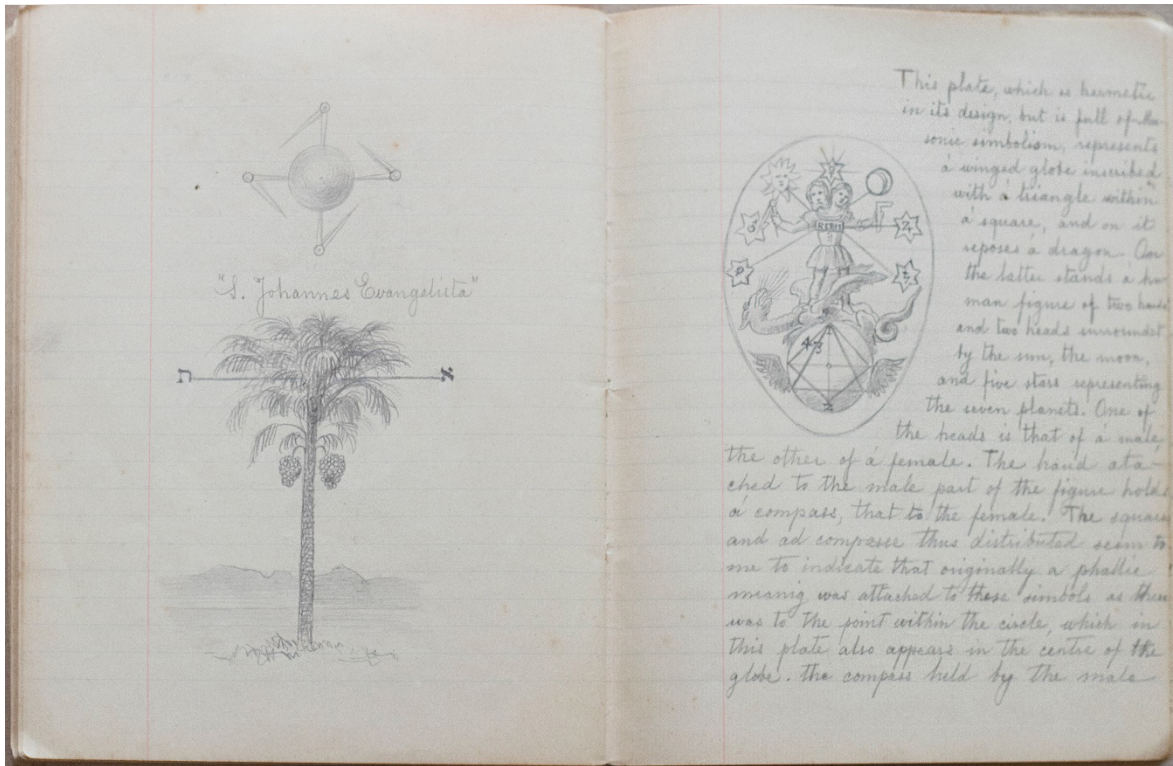 "S. Johannes Evangelista"
ת א
This plate, which is hermetic
in its design, but is full of Ma-
sonic simbolism, represents
a winged globe inscribed
with a triangle within
a square, and on it
reposes a dragon. On
the latter stands a hu-
man figure of two hands
and two heads surrounded
by the sun, the moon,
and five stars representing
the seven planets. One of
the heads is that of a male,
the other of a female. The hand ata-
ched to the male part of the figure holds
a compass, that to the female. The square
and ad compasse thus distributed seem to
me to indicate that originally a phallic
meanig was attached to these simbols as there
was to the point within the circle, which in
this plate also appears in the centre of the
globe. the compass held by the male
REBIS
4 3